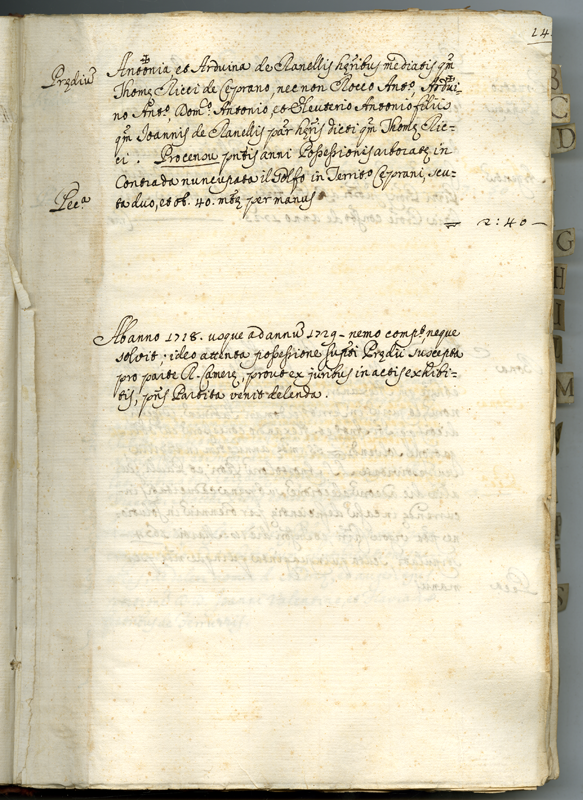 14
Prędiũ
Antonia et Arduina de Clanellis hęribus mediatis qm̃
Thomę Ricci de Ceprano, nec non Rocco Antᵒ, Ardui-
no Antᵒ Domᶜᵒ Antonio, et Eleuterio Antonio filiis
qm̃ Joannis de Clanellis par' hęris dicti qm̃ Thomę Ric-
ci. Pro censu pñtis anni Possessionis arboratę in
Contrada nuncupata il Golfo in Territᵒ Ceprani, scu-
Pecᵃ
ta duo, et ob. 40. mtę per manus
= 2:40 —
Ab anno 1718. usque ad annũ 1729 - nemo compᵗ, neque
solvit; ideo attenta possessione supᵗi Prędii suscepta
pro parte R. Camerę, prout ex juribus in actis exhibi-
tis, pñs Partita venit delenda.
B
C
D
G
H
I
L
M
S